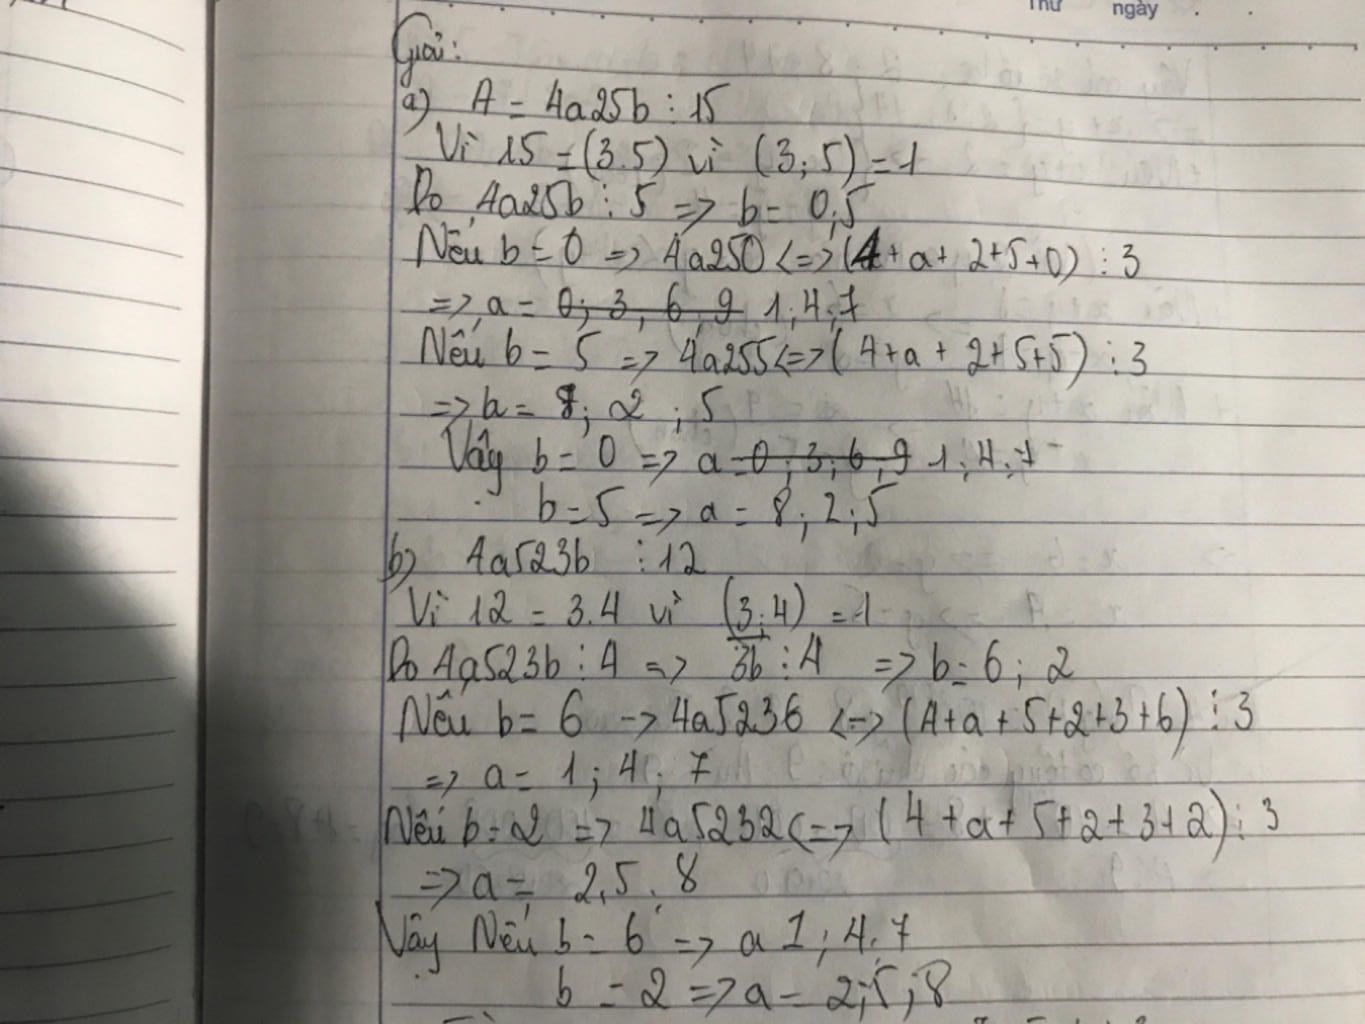 Thứ ngày
Giải:
a) A = 4a25b ⋮ 15
Vì 15 = (3.5) vì (3; 5) = 1
Do 4a25b ⋮ 5 => b = 0;5
Nếu b = 0 => 4a250 <=> (4 + a + 2+5+0) ⋮ 3
=> a = 0; 3, 6, 9 1; 4; 7
Nếu b = 5 => 4a255 <=> (4+a + 2+5+5) ⋮ 3
=> a = 8; 2 ; 5
Vậy b = 0 => a = 0; 3; 6, 9 1; 4; 7
b = 5 => a = 8; 2; 5
b) 4a523b ⋮ 12
Vì 12 = 3.4 vì (3;4) = 1
Do 4a523b ⋮ 4 => 3b ⋮ 4 => b = 6; 2
Nếu b = 6 -> 4a5236 <=> (4+a+5+2+3+6) ⋮ 3
=> a = 1; 4; 7
Nếu b = 2 => 4a5232 <=> (4+a+5+2+3+2) ⋮ 3
=> a = 2, 5, 8
Vậy Nếu b = 6 => a 1; 4; 7
b = 2 => a = 2; 5; 8